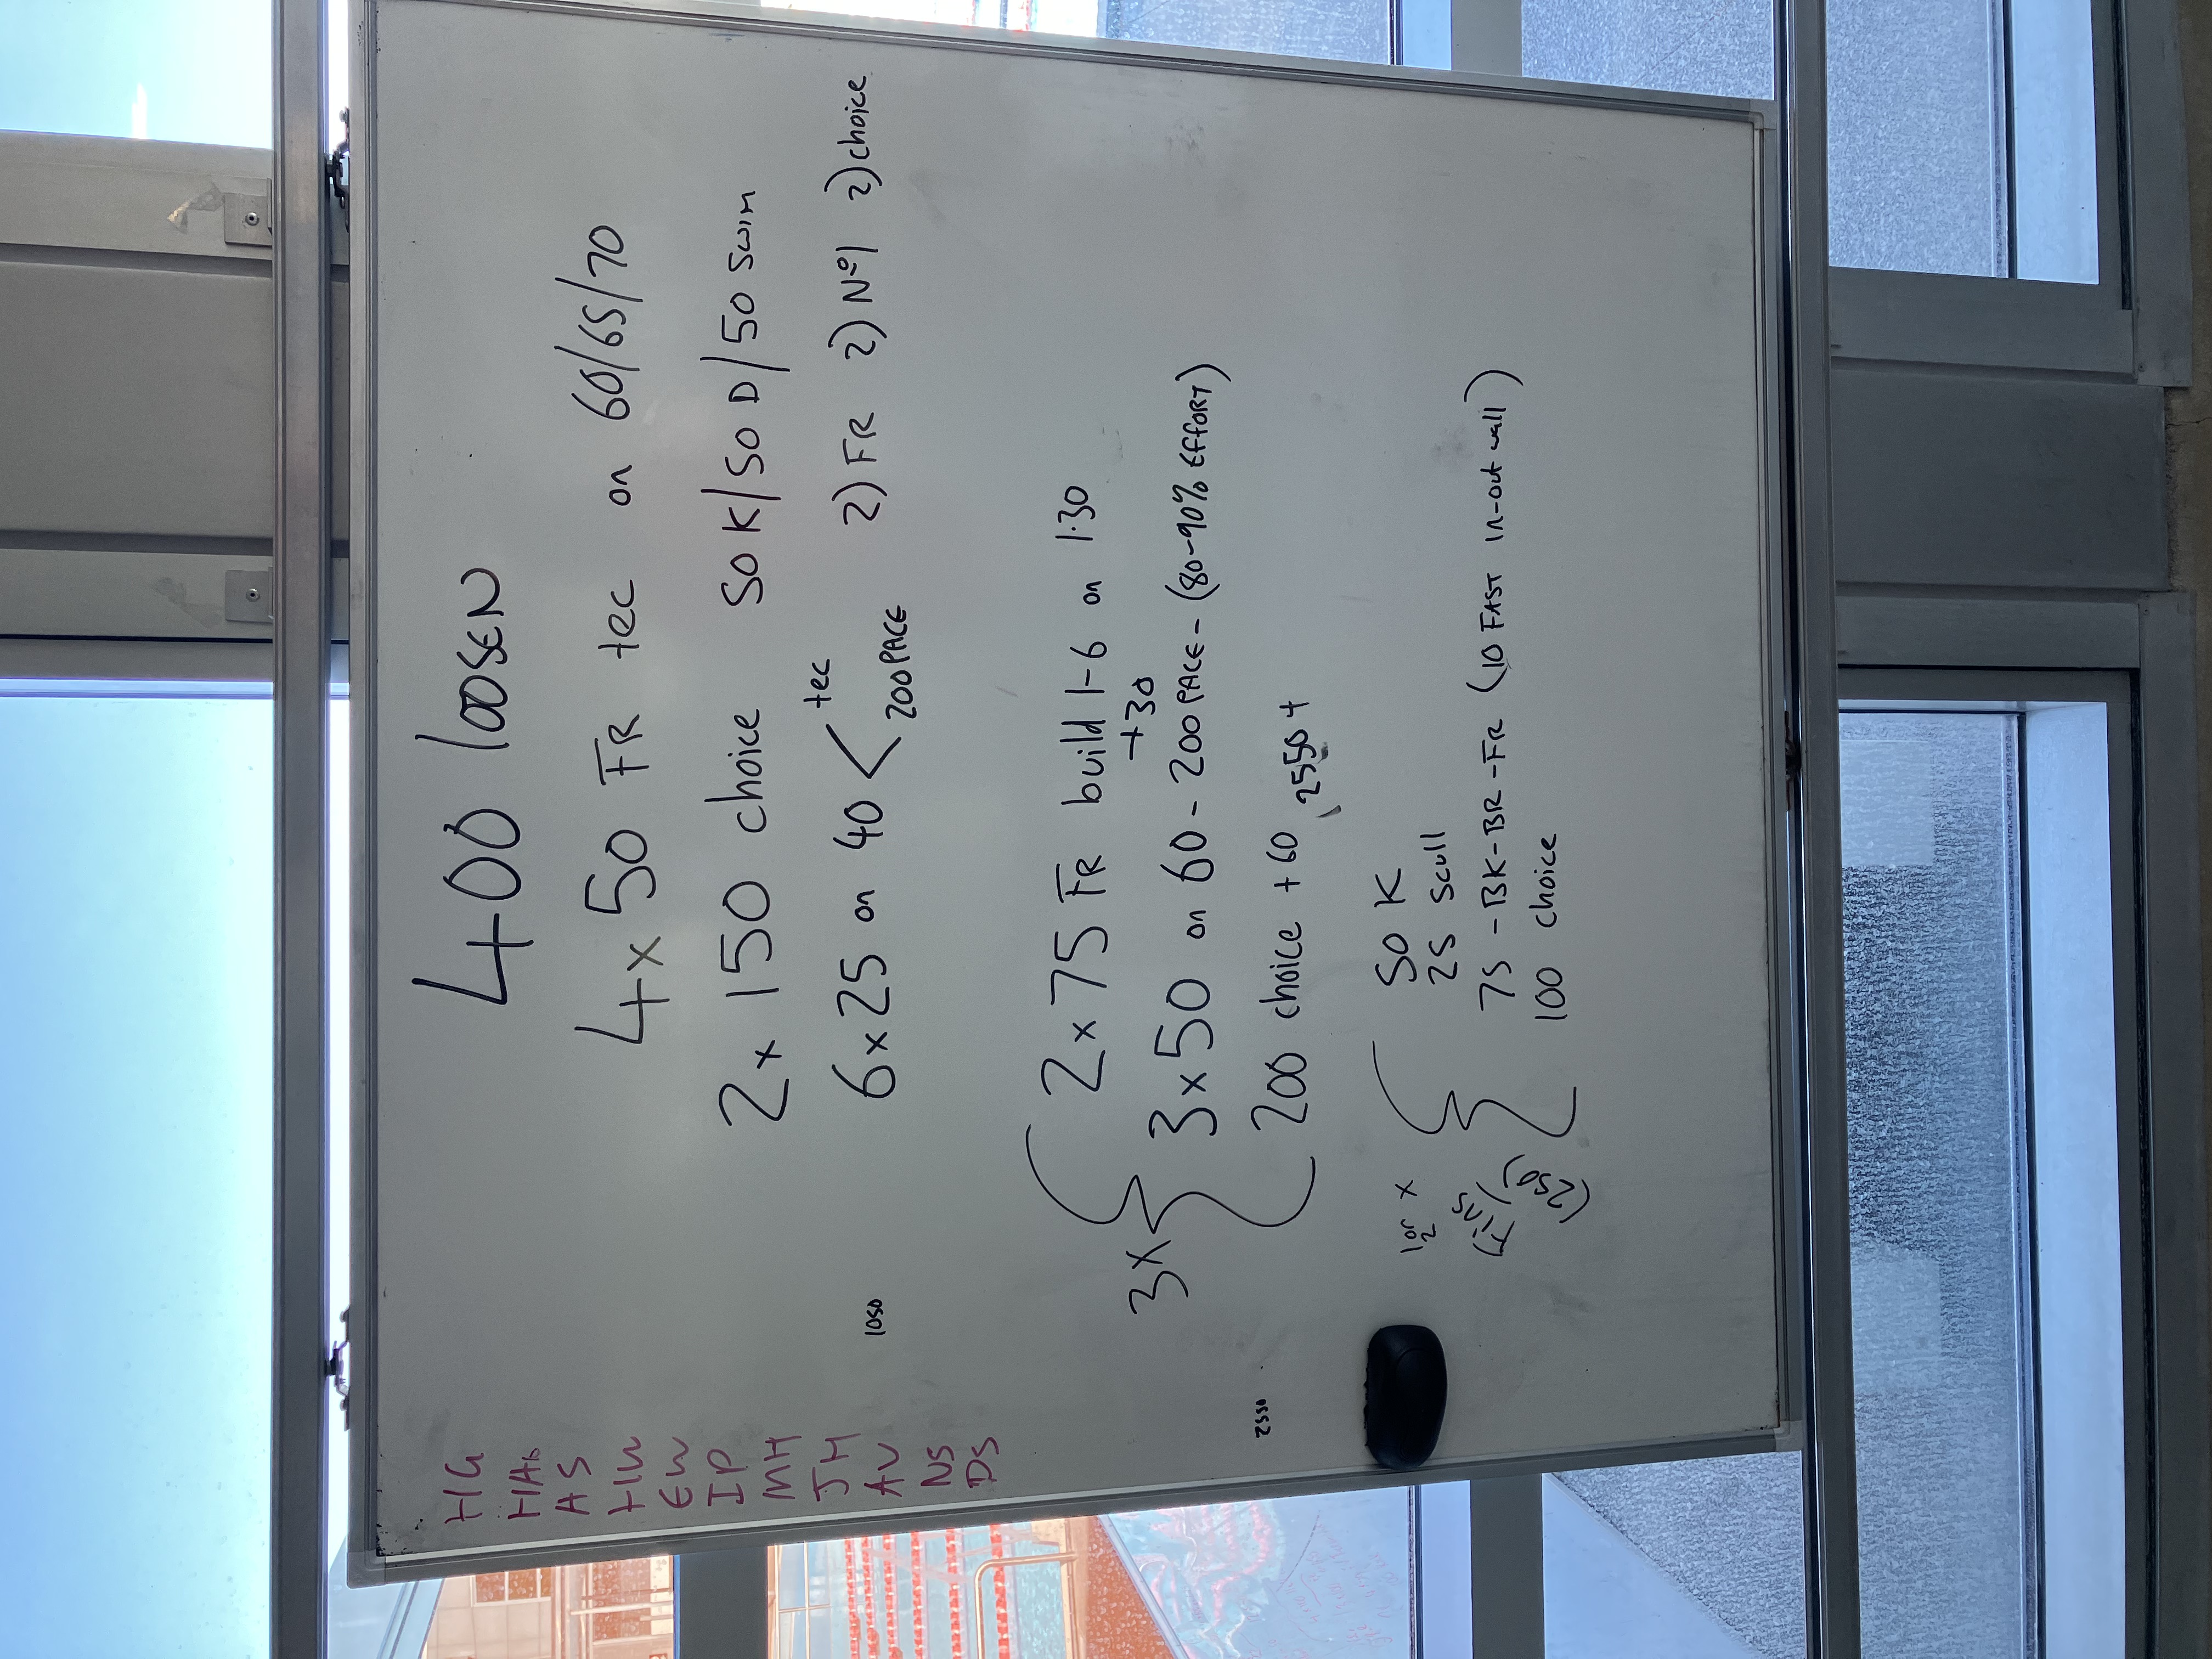 400 loosEN
4x50 FR tec on 60/65/70
2x150 choice 50K/50D/50 swim
6x25 on 40 < tec 2) FR 2) Nº1 2) choice
200 PACE
1050
3x { 2x75 FR build 1-6 on 1.30
+30
3x50 on 60 - 200 PACE - (80-90% EFFORT)
200 choice + 60
2550 +
2550
1 or 2 x { 50 K
25 scull
(FINS) 75 - BK-BR-FR (10 FAST in-out wall)
(250) 100 choice
HG
HAb
AS
HW
EW
IP
MH
JH
AV
NS
DS